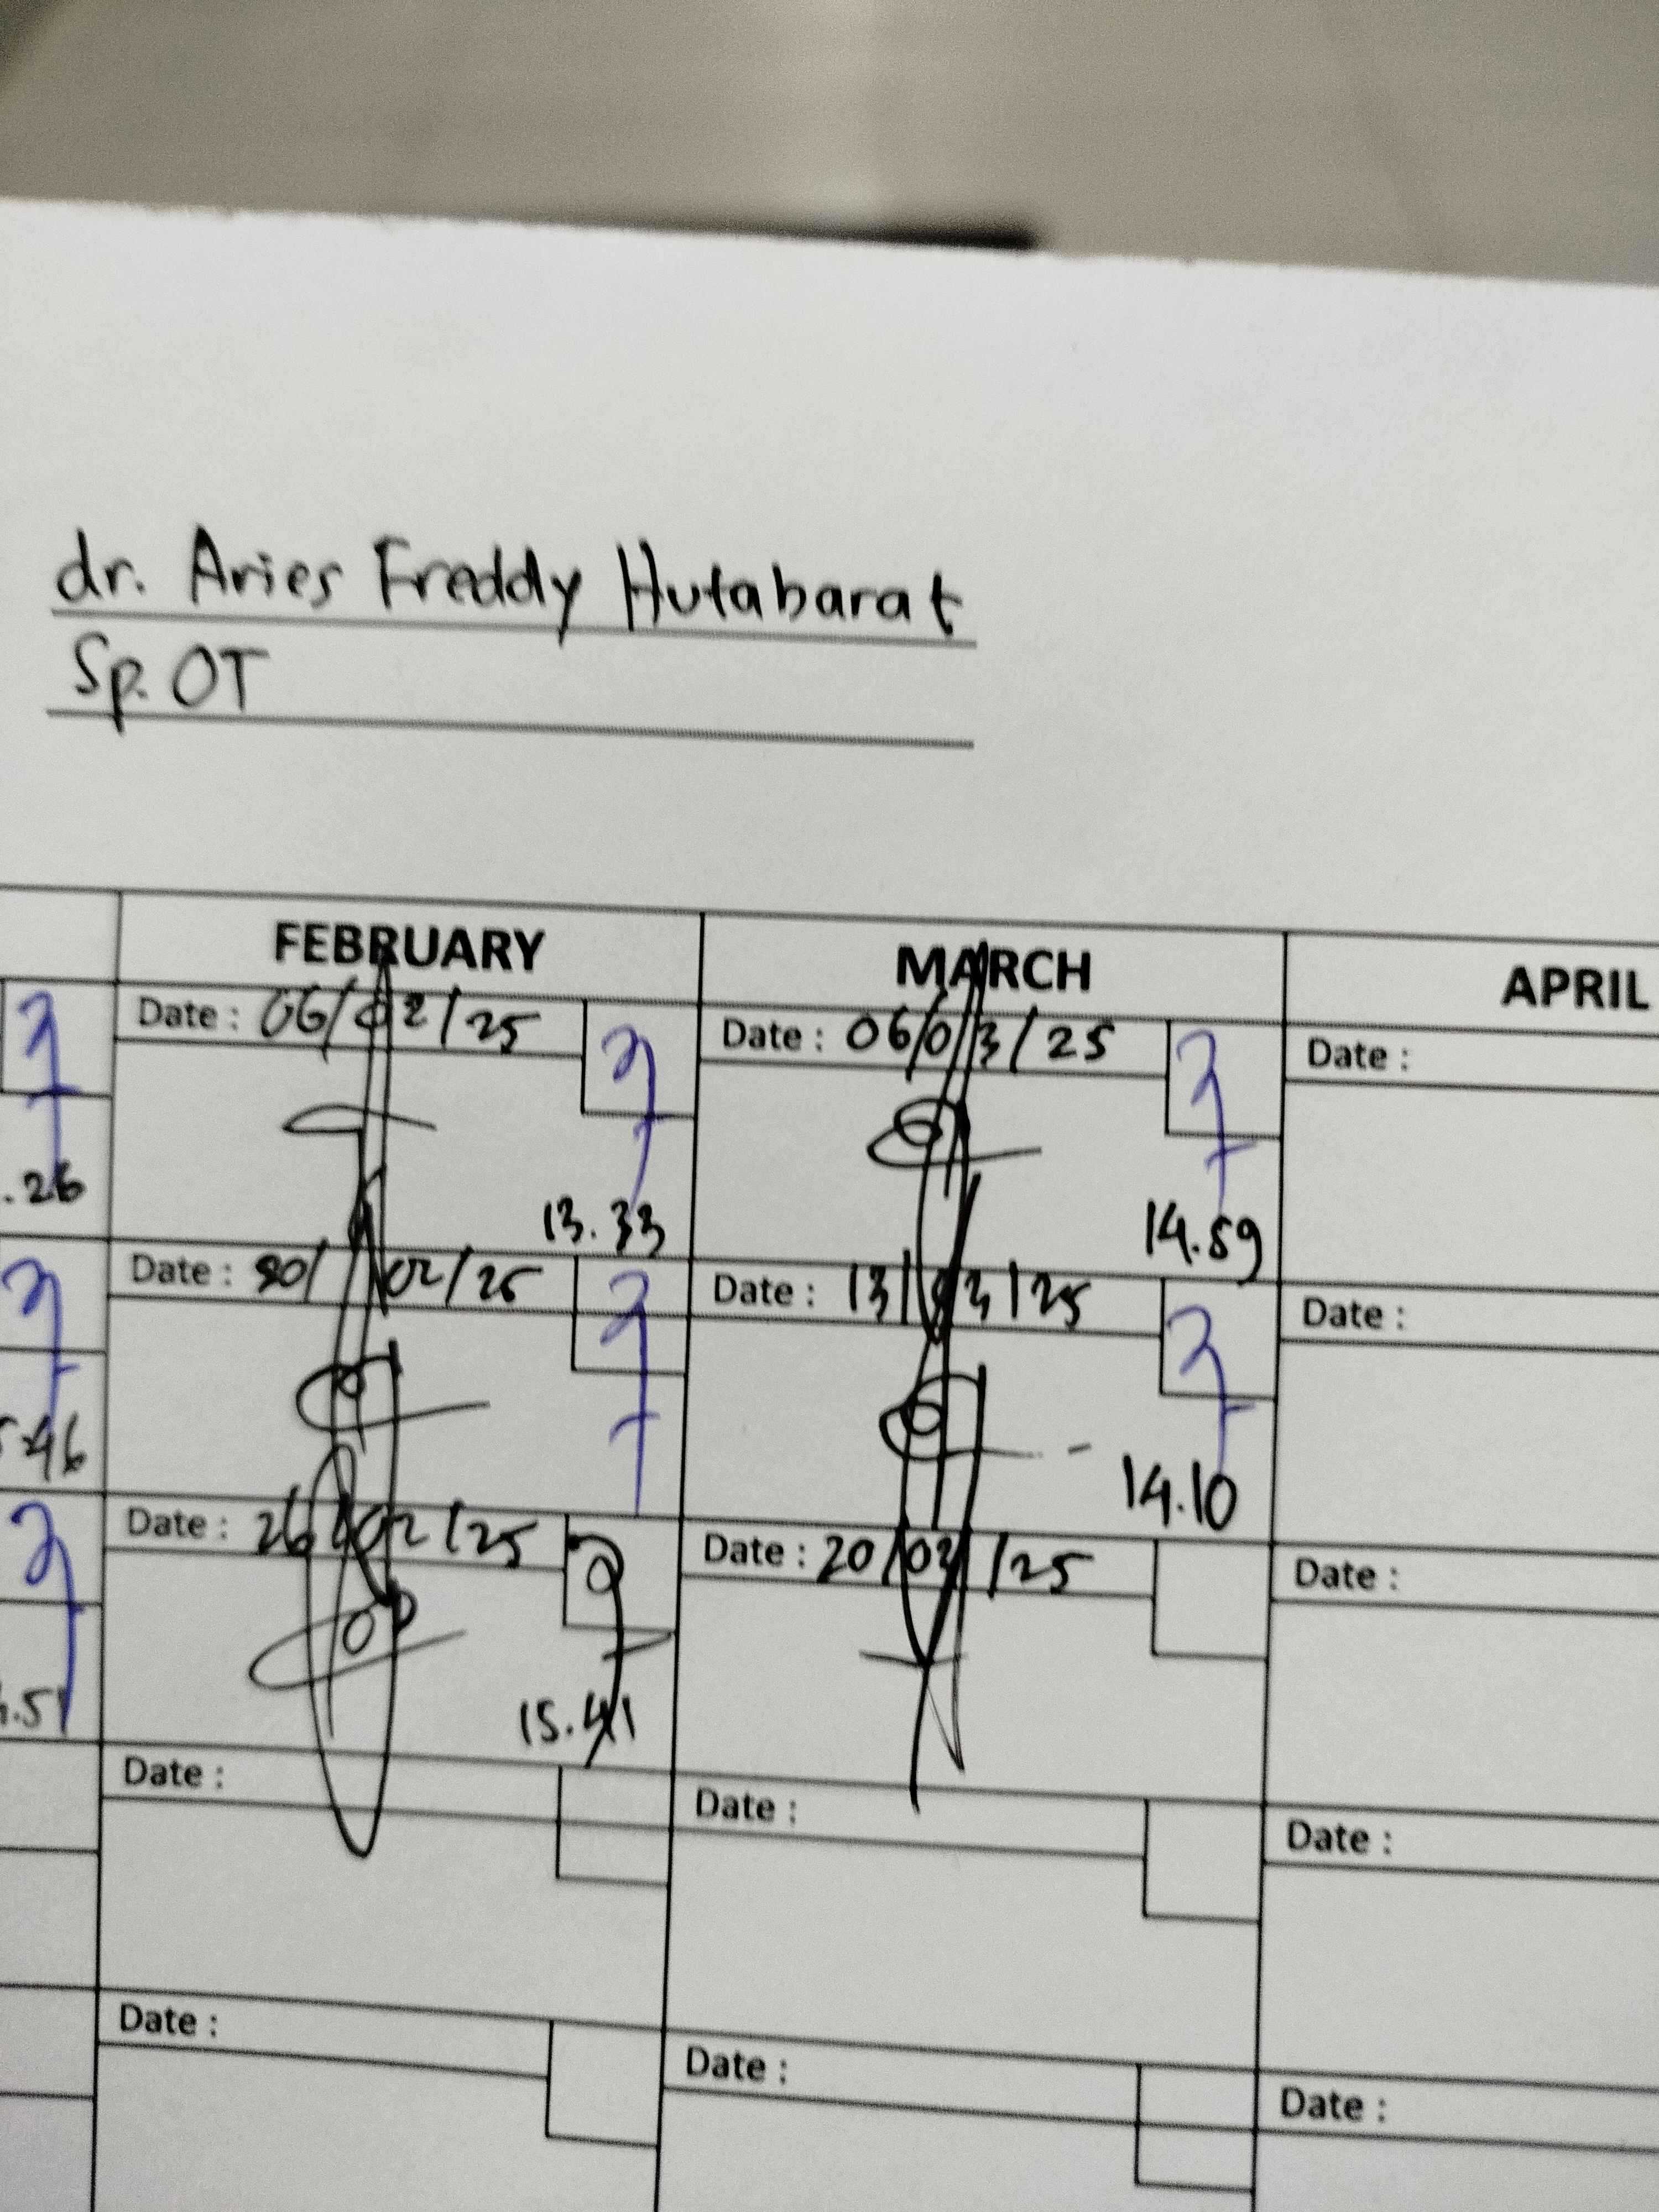 dr. Aries Freddy Hutabarat
Sp. OT
FEBRUARY MARCH APRIL
Date : 06/02/25 Date : 06/03/25 Date :
.26 13.33 14.59
Date : 20/02/25 Date : 13/03/25 Date :
.46 14.10
Date : 26/02/25 Date : 20/03/25 Date :
.51 15.41
Date : Date : Date :
Date : Date : Date :